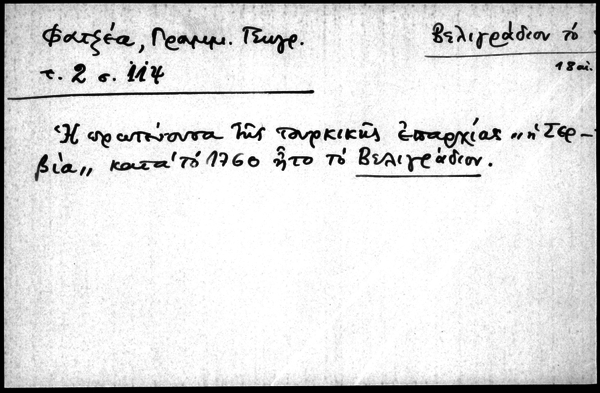 Φατζέα, Γραμμ. Γεωγρ.
τ. 2 σ. 114
Βελιγράδιον τό
18 αἰ.
Ἡ πρωτεύουσα τῆς τουρκικῆς ἐπαρχίας „ἡ Σερ-
βία„ κατά τό 1760 ἦτο τό Βελιγράδιον.